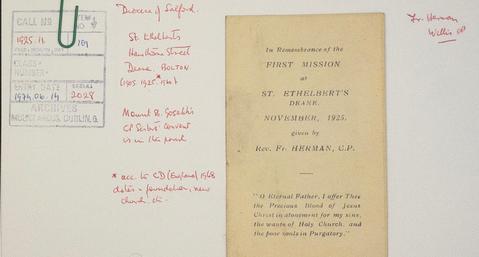 CALL NO
ITEM NO
1925.11
709
YEAR, MONTH, DAY
CLASS-
NUMBER-
ENTRY DATE
SERIAL
1974.06.14
2028
ARCHIVES
MOUNT ARGUS, DUBLIN, 6.
Diocese of Salford.
St Ethelberts
Street
Deane, BOLTON
(1905. 1925*
Mount St. Joseph's
CP Convent
is in the parish
* acc. to CD (England) 1968
dates = foundation, new
church, etc.
In Remembrance of the
FIRST MISSION
at
ST. ETHELBERT'S
DEANE.
NOVEMBER, 1925.
given by
REV. FR. HERMAN, C.P.
"O Eternal Father, I offer Thee
the Precious Blood of Jesus
Christ in atonement for my sins,
the wants of Holy Church, and
the poor souls in Purgatory."
Fr. Herman
CP